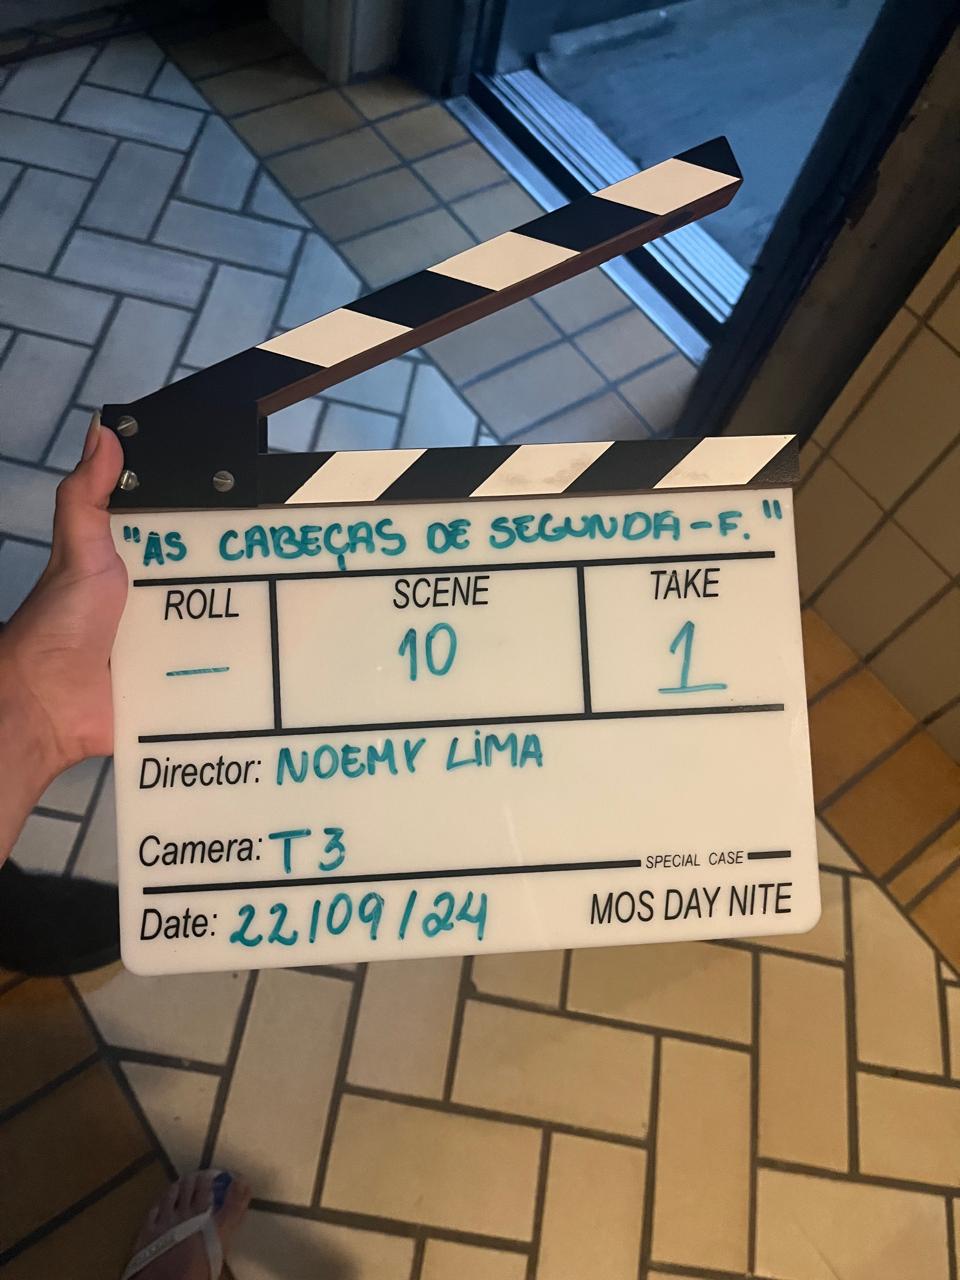 "AS CABEÇAS DE SEGUNDA-F."
ROLL SCENE TAKE
— 10 1
Director: NOEMY LIMA
Camera: T3
SPECIAL CASE
Date: 22/09/24 MOS DAY NITE